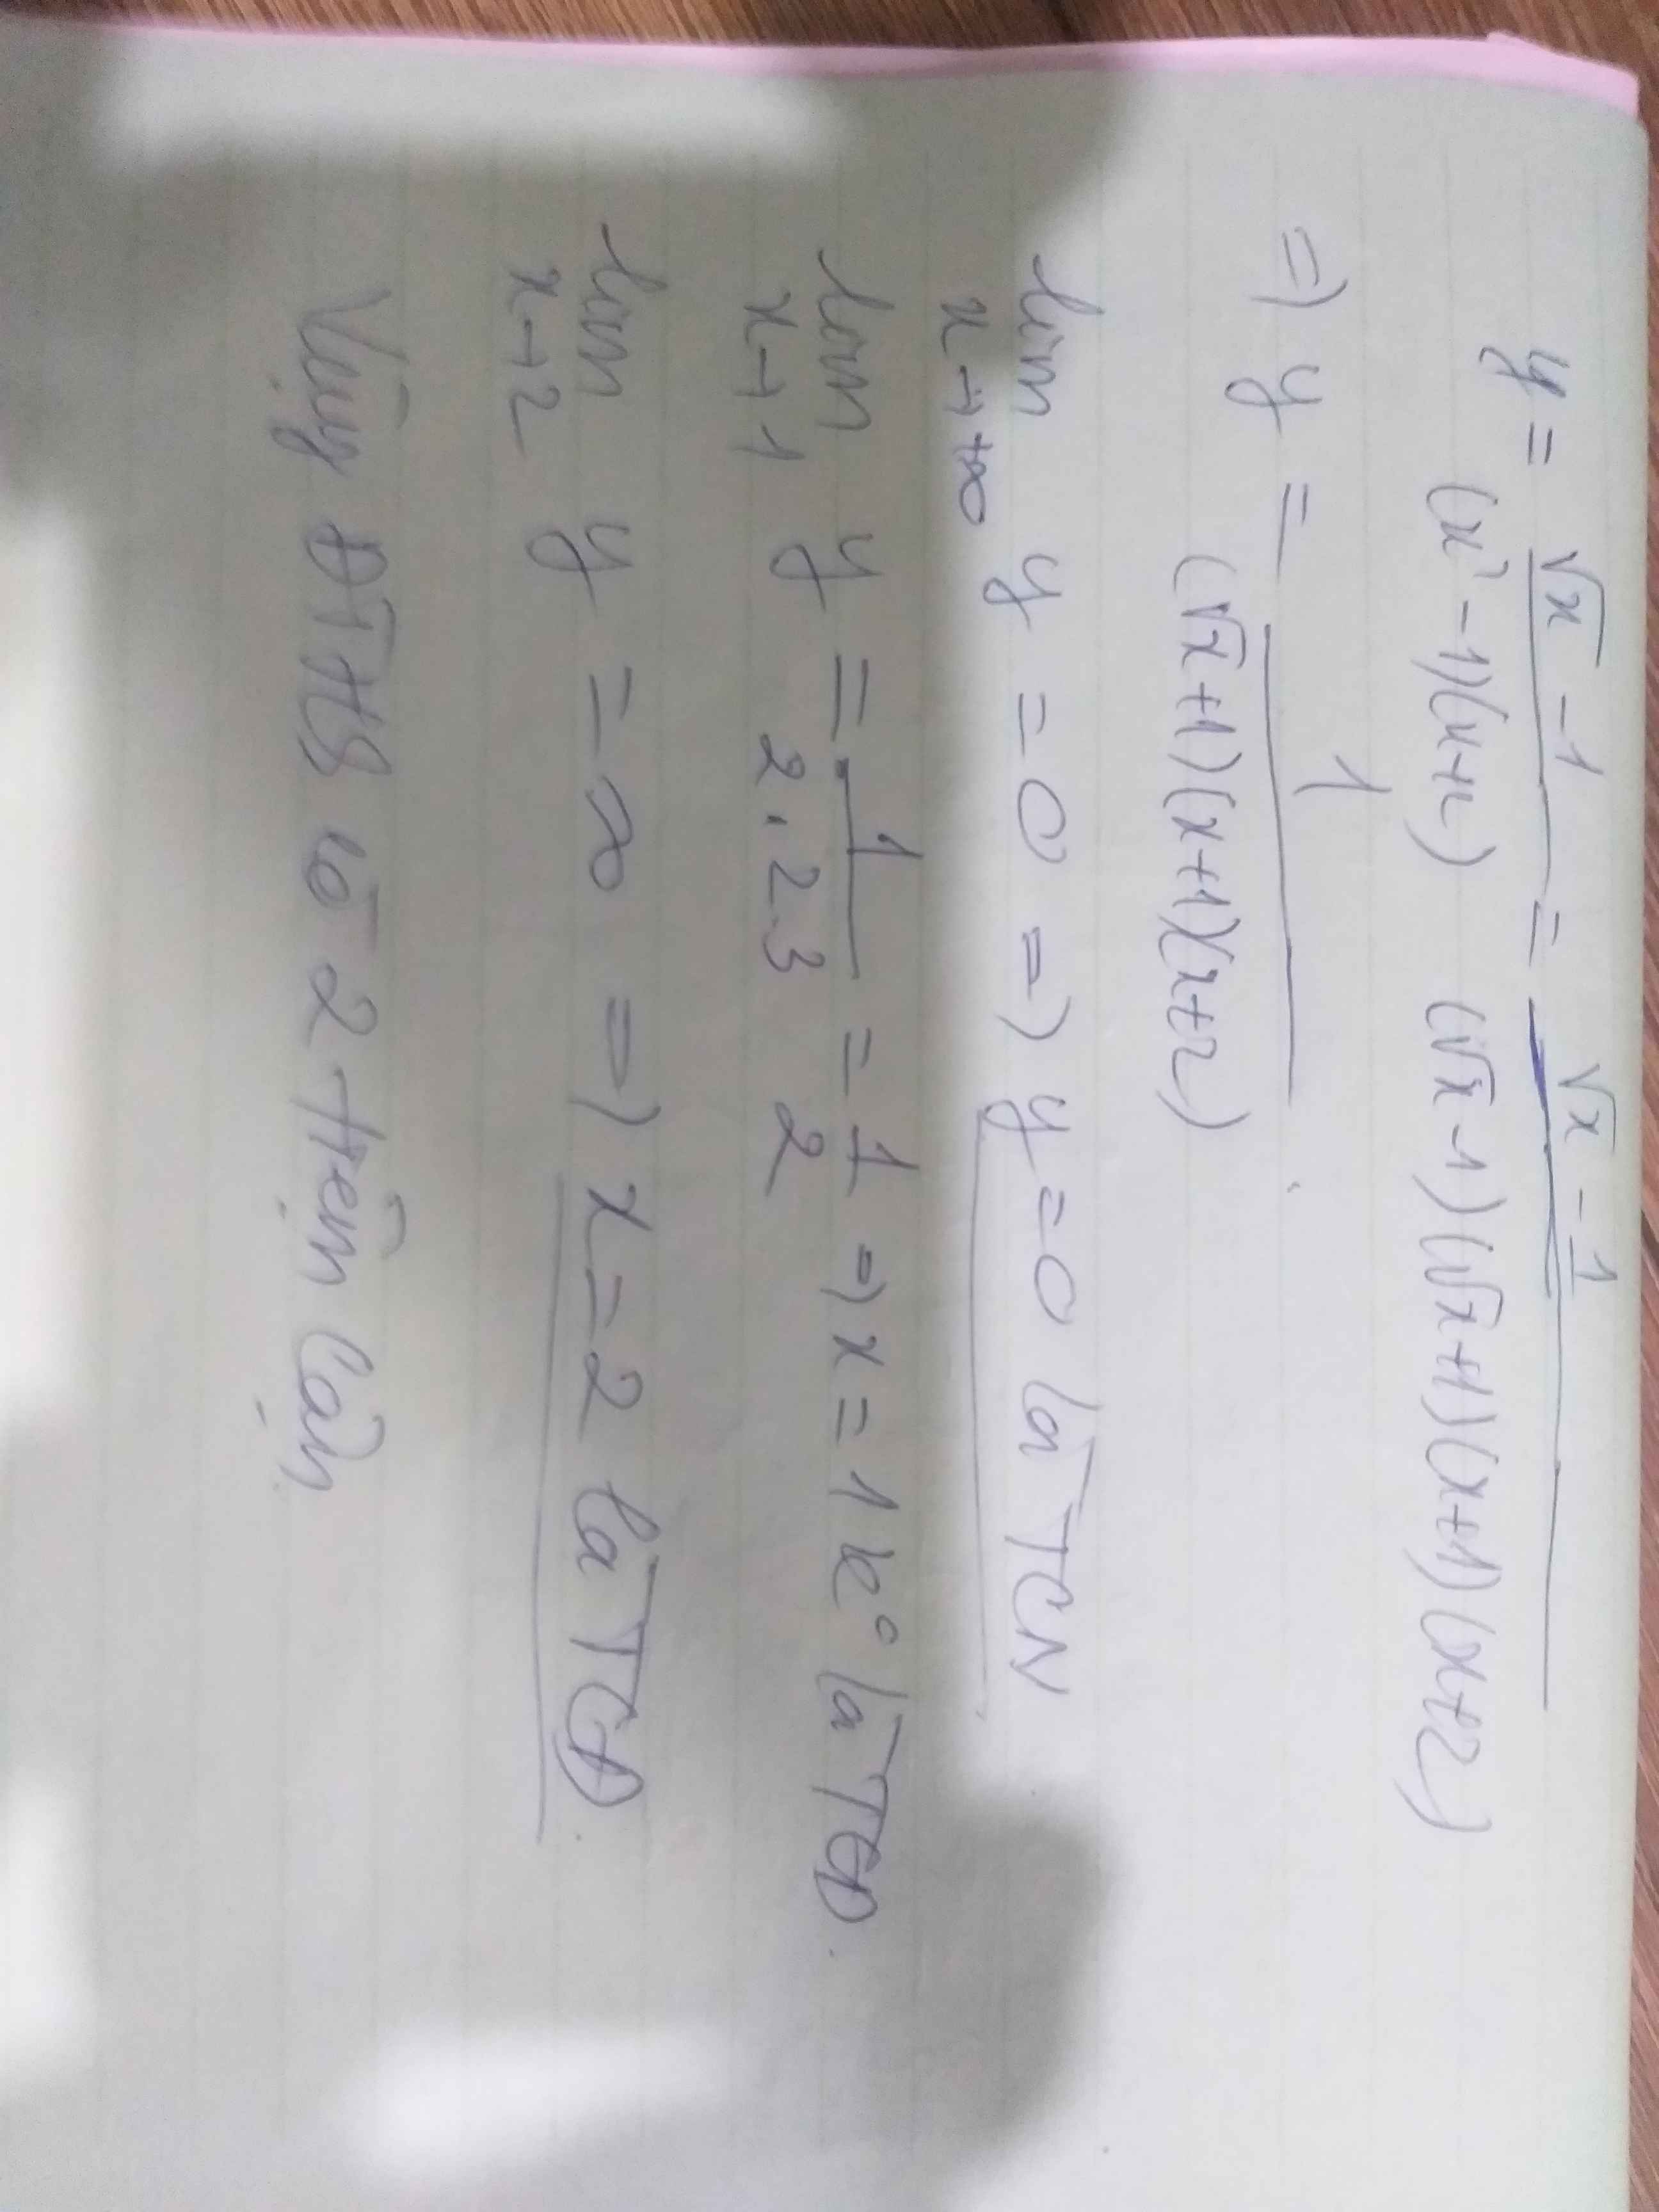 y = (√x - 1)/((x² - 1)(x+2)) = (√x - 1)/((√x - 1)(√x + 1)(x+1)(x+2))
=) y = 1/((√x + 1)(x+1)(x+2))
lim x→+∞ y = 0 =) y = 0 là TCN
lim x→1 y = 1/(2.2.3) = 1/2 =) x = 1 k° là TCĐ.
lim x→2 y = ∞ =) x = 2 là TCĐ.
Vậy ĐTHS có 2 tiệm cận